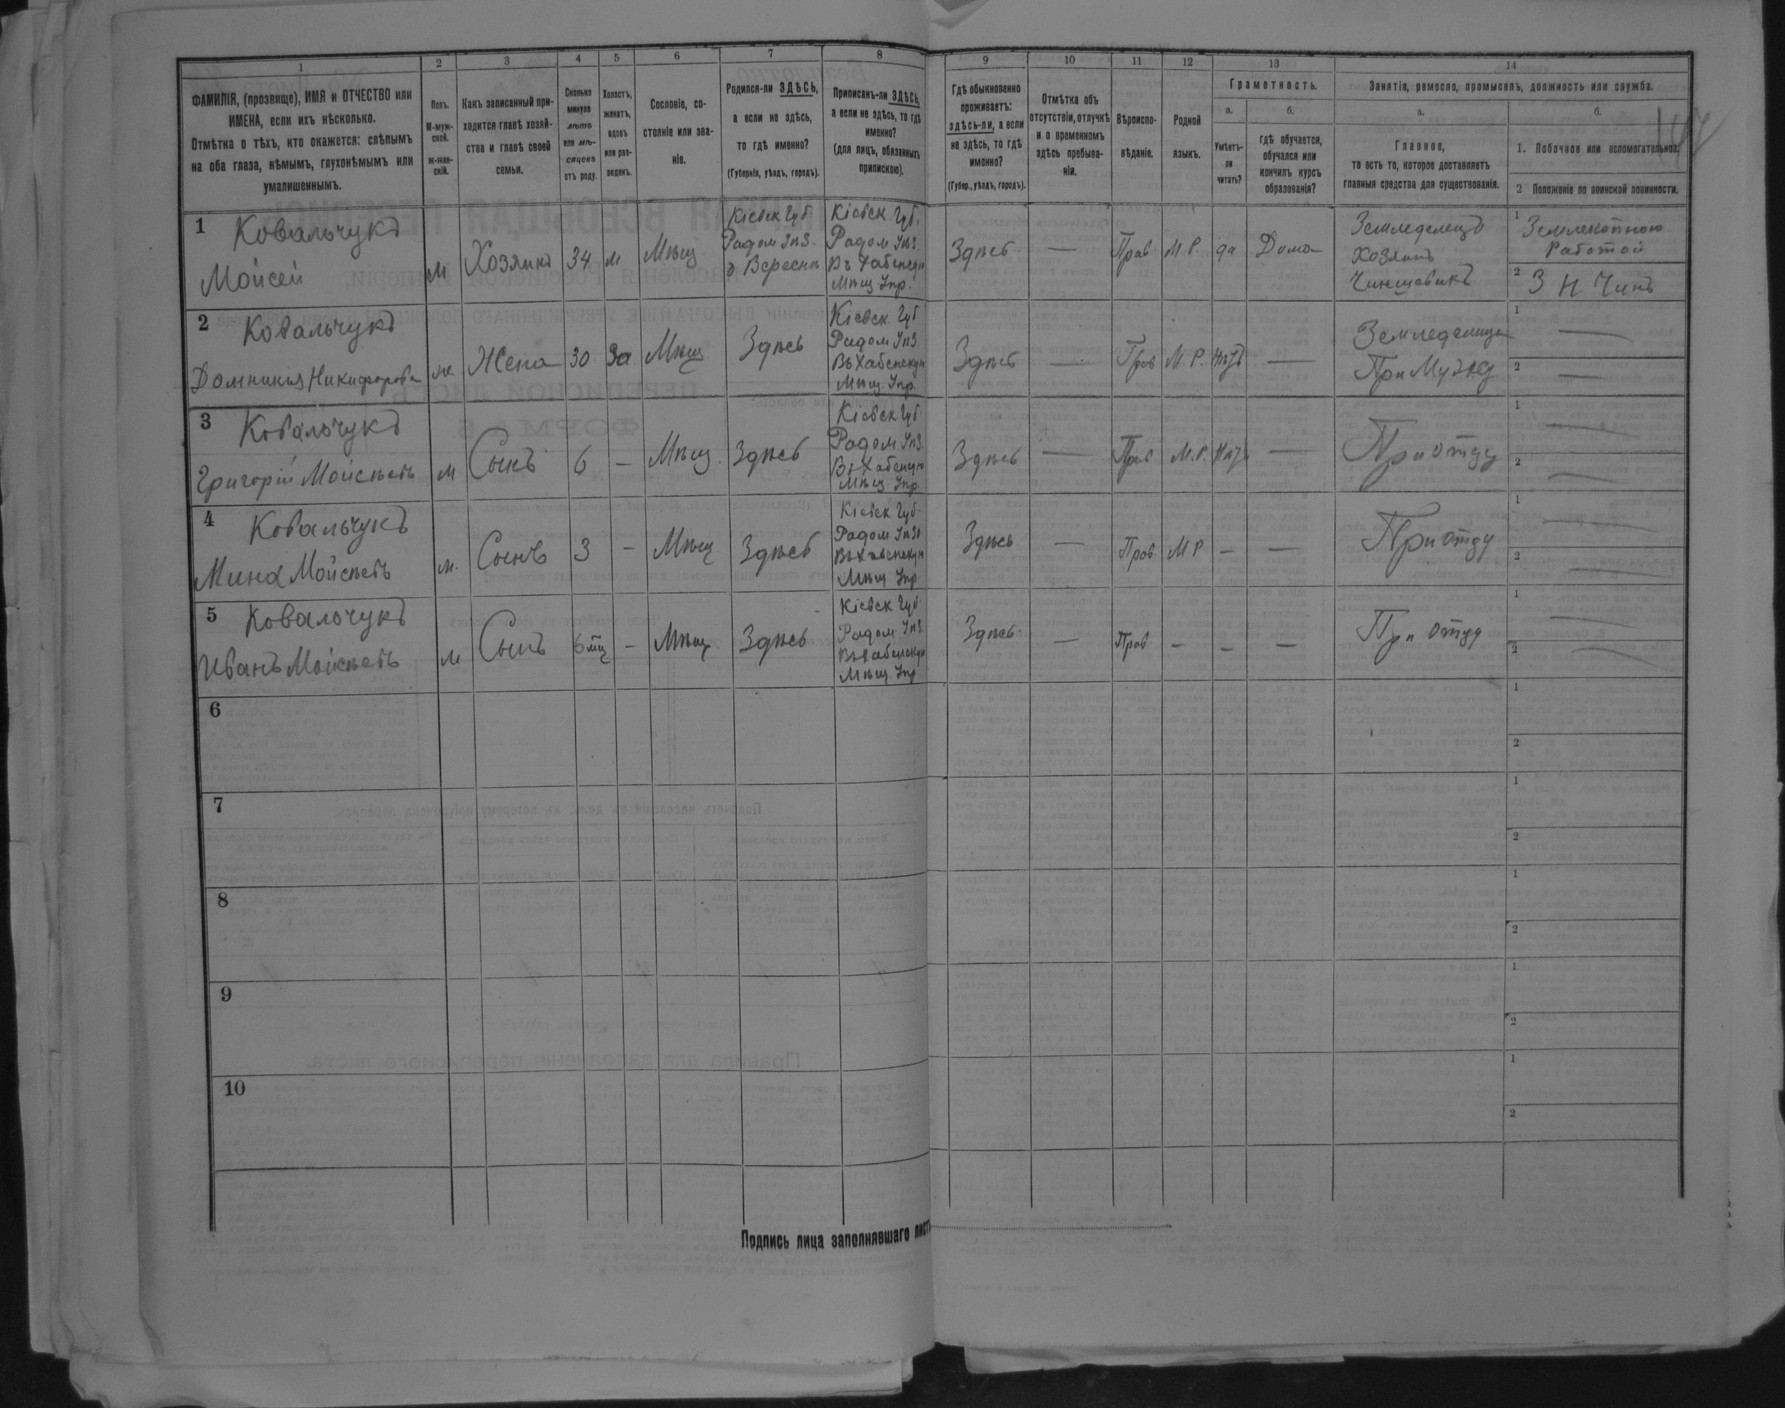 1 2 3 4 5 6 7 8 9 10 11 12 13 14
ФАМИЛІЯ, (прозвище), ИМЯ и ОТЧЕСТВО или
ИМЕНА, если ихъ нѣсколько.
Отмѣтка о тѣхъ, кто окажется: слѣпымъ
на оба глаза, нѣмымъ, глухонѣмымъ или
умалишеннымъ.
Полъ.
М-муж-
ской.
ж-жен-
скій.
Какъ записанный при-
ходится главѣ хозяй-
ства и главѣ своей
семьи.
Сколько
минуло
лѣтъ
или мѣ-
сяцевъ
отъ роду.
Холостъ,
женатъ,
вдовъ
или раз-
веденъ.
Сословіе, со-
стояніе или зва-
ніе.
Родился-ли ЗДѢСЬ,
а если не здѣсь,
то гдѣ именно?
(Губернія, уѣздъ, городъ).
Приписанъ-ли ЗДѢСЬ,
а если не здѣсь, то гдѣ
именно?
(для лицъ, обязанныхъ
припискою).
Гдѣ обыкновенно
проживаетъ:
здѣсь-ли, а если
не здѣсь, то гдѣ
именно?
(Губер., уѣздъ, городъ).
Отмѣтка объ
отсутствіи, отлучкѣ
и о временномъ
здѣсь пребыва-
ніи.
Вѣроиспо-
вѣданіе.
Родной
языкъ.
Грамотность.
а.
Умѣетъ-
ли
читать?
б.
гдѣ обучается,
обучался или
кончилъ курсъ
образованія?
Занятіе, ремесло, промыселъ, должность или служба.
а.
Главное,
то есть то, которое доставляетъ
главныя средства для существованія.
б.
1. Побочное или вспомогательное.
2 Положеніе по воинской повинности.
1 Ковальчукъ
Мойсей
м Хозяинъ 34 м Мѣщ
Кіевск Губ
Радом
д Вересня
Кіевск. Губ.
Радом
Мѣщ Упр.
Здѣсь — Прав М.Р. да Дома
Земледелецъ
Хозяинъ
Чиншевикъ
1 Землекопною
Работой
2 З Н Чинъ
2 Ковальчукъ
Домникия Никифорова
ж Жена 30 За Мѣщ Здѣсь
Кіевск. Губ
Радом
Въ Хабенскую
Мѣщ Упр.
Здѣсь — Прав М.Р. —
Земледелица
При Мужу
1 —
2 —
3 Ковальчукъ
Григорій Мойсѣевъ
м Сынъ 6 — Мѣщ. Здѣсь
Кіевск Губ
Радом
Въ Хабенскую
Мѣщ. Упр
Здѣсь — Прав М.Р. —
При отцу
1 —
2 —
4 Ковальчукъ
Мина Мойсѣевъ
м. Сынъ 3 — Мѣщ. Здѣсь
Кіевск Губ.
Радом
Въ Хабенскую
Мѣщ Упр
Здѣсь — Прав. М Р — —
При отцу
1 —
2 —
5 Ковальчукъ
Иванъ Мойсѣевъ
м Сынъ 6 мц — Мѣщ Здѣсь
Кіевск Губ.
Радом
Въ Хабенскую
Мѣщ. Упр
Здѣсь. — Прав — — —
При отцу
1 —
2 —
6 1
2
7 1
2
8 1
2
9 1
2
10 1
2
Подпись лица заполнявшаго